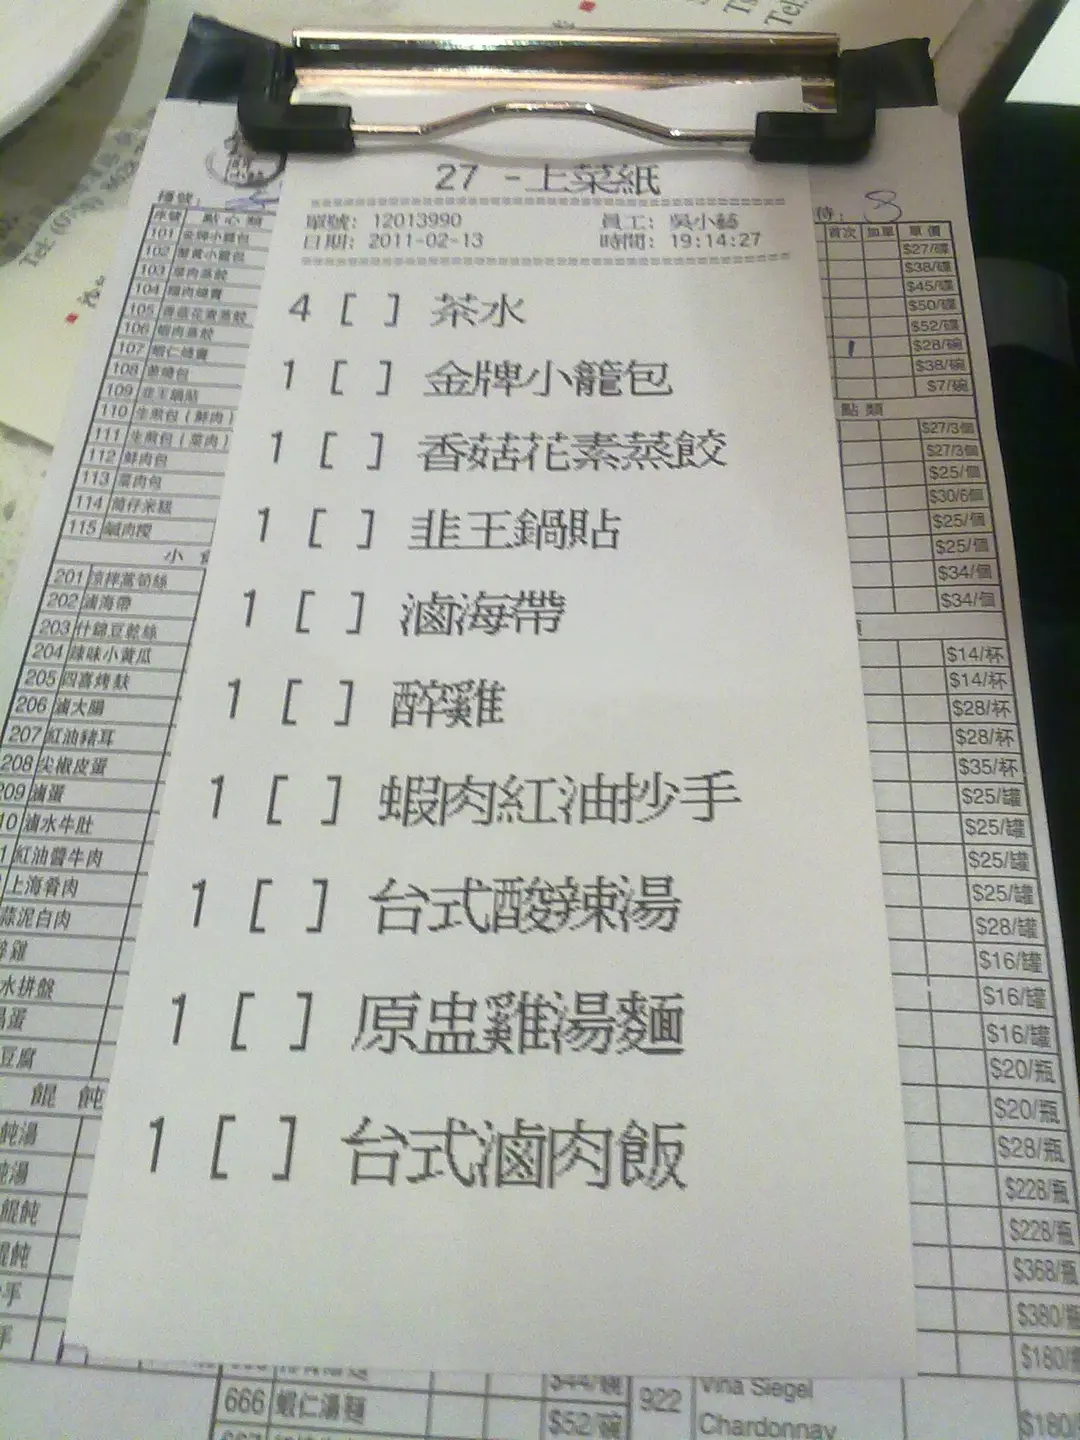 27 -上菜紙
單號: 12013990 員工: 吳小藝
日期: 2011-02-13 時間: 19:14:27
4 [ ] 茶水
1 [ ] 金牌小籠包
1 [ ] 香菇花素蒸餃
1 [ ] 韭王鍋貼
1 [ ] 滷海帶
1 [ ] 醉雞
1 [ ] 蝦肉紅油抄手
1 [ ] 台式酸辣湯
1 [ ] 原盅雞湯麵
1 [ ] 台式滷肉飯
序號 點心類
101 金牌小籠包
102 蟹黃小籠包
103 菜肉蒸餃
104 糯肉燒賣
105 香菇花素蒸餃
106 蝦肉蒸餃
107 蝦仁燒賣
108
109 韭王鍋貼
110 生煎包(鮮肉)
111 生煎包(菜肉)
112 鮮肉包
113 菜肉包
114 筒仔米糕
115 鹹肉糭
小
201 涼拌萵筍絲
202 滷海帶
203 什錦豆乾絲
204 辣味小黃瓜
205 四喜烤麩
206 滷大腸
207 紅油豬耳
208 尖椒皮蛋
09 滷蛋
10 滷水牛肚
1 紅油醬牛肉
上海肴肉
蒜泥白肉
雞
水拼盤
蛋
豆腐
餛飩
飩湯
湯
餛飩
飩
手
手
待: 8
首次 加單 單價
$27/碟
$38/碟
$45/碟
$50/碟
$52/碟
$28/碗
$38/碗
$7/碗
點類
$27/3個
$27/3個
$25/個
$30/6個
$25/個
$25/個
$34/個
$34/個
$14/杯
$14/杯
$28/杯
$28/杯
$35/杯
$25/罐
$25/罐
$25/罐
$25/罐
$28/罐
$16/罐
$16/罐
$16/罐
$20/瓶
$20/瓶
$28/瓶
$228/瓶
$228/瓶
$368/瓶
$380/瓶
$180/瓶
$44/碗 Vina Siegel
666 蝦仁湯麵 $52/碗 922 Chardonnay $180/